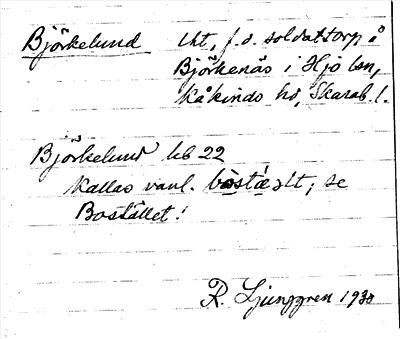 Björkelund lht, f.d. soldattorp å
Björkenäs i Hjo lsn,
Kåkinds hd, Skarab. l.
Björkelund lb 22
Kallas vanl. se
Bostället!
R. Ljunggren 1930